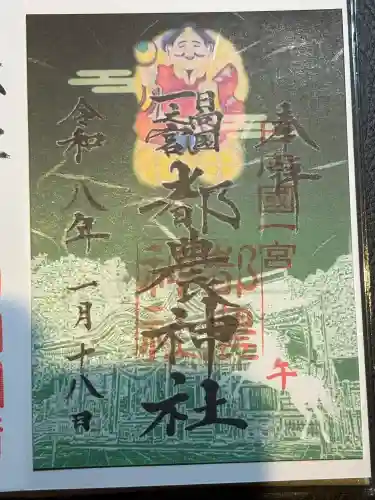 奉拝
日向國
一之宮
都農神社
令和八年一月十八日
日向國一宮
都農
神社
午